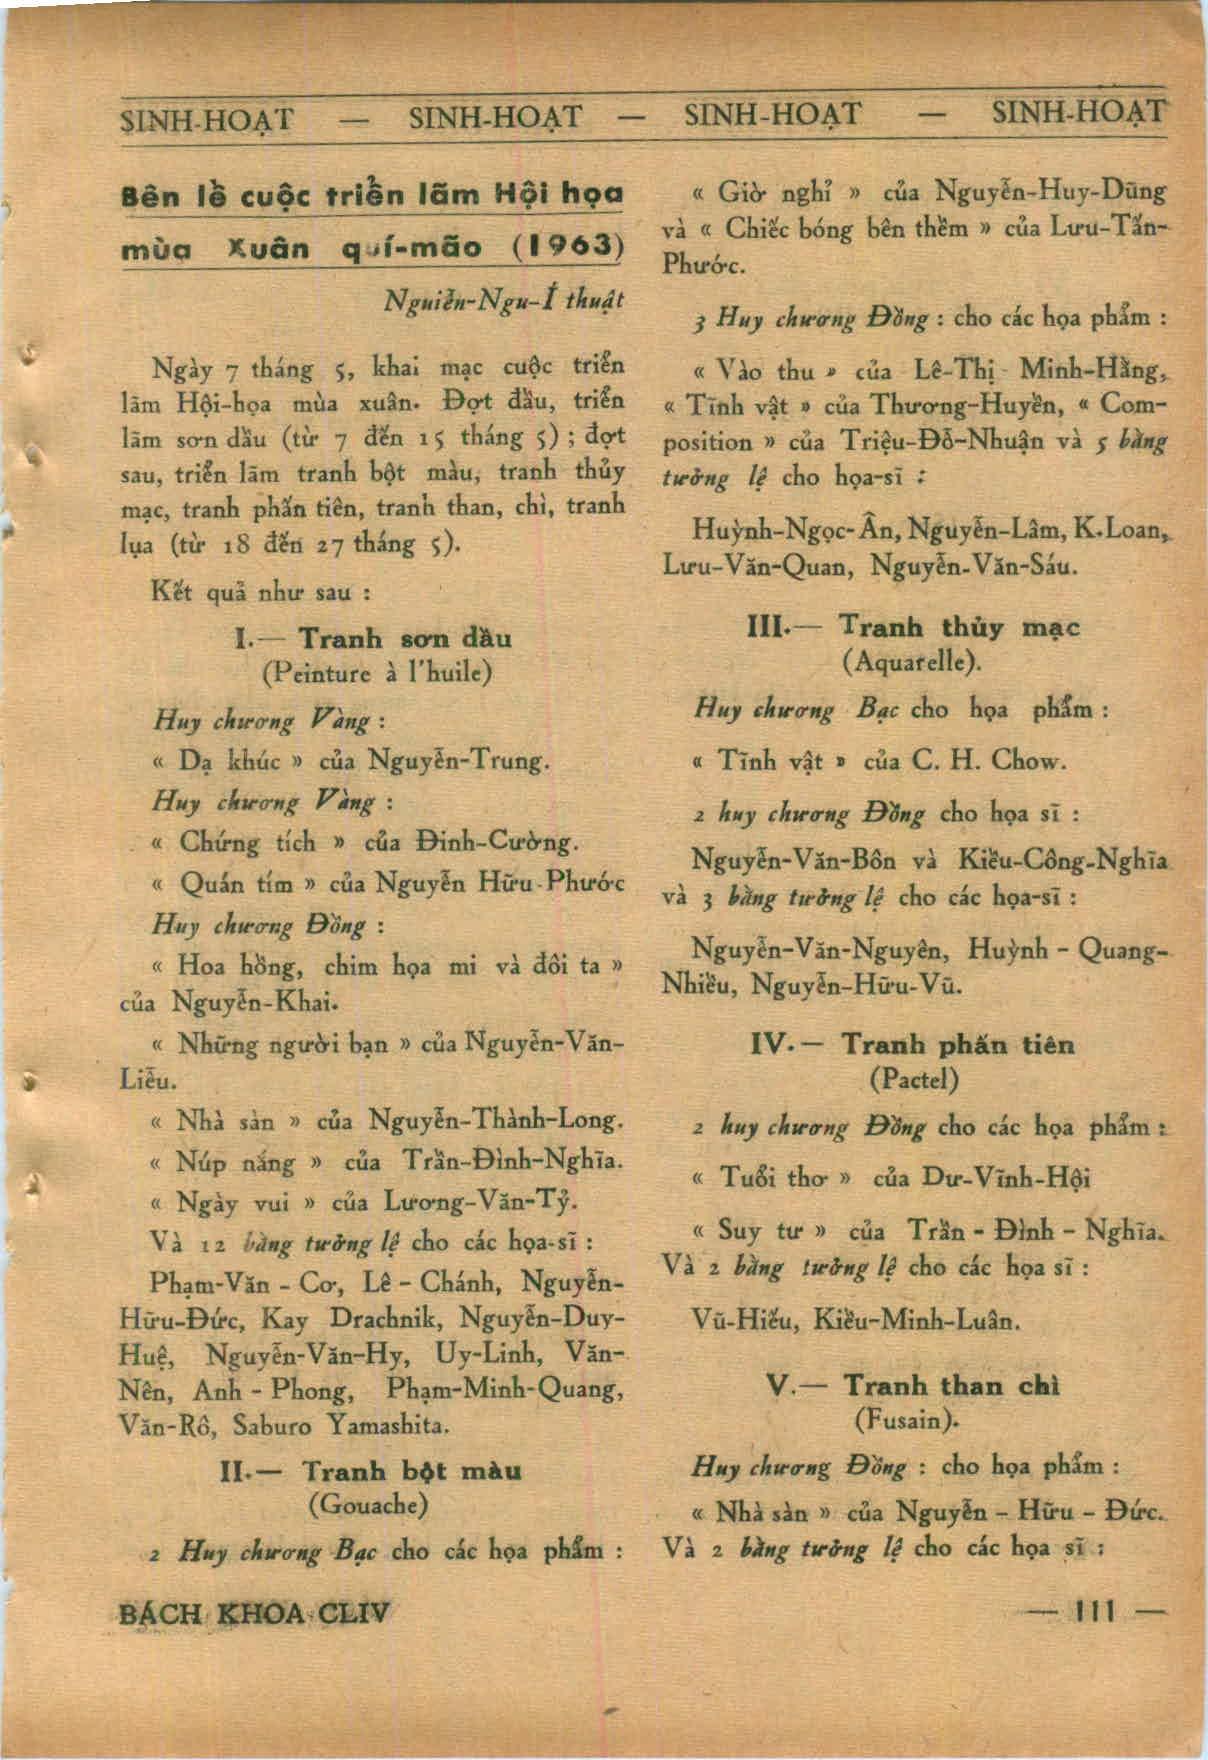 SINH-HOẠT — SINH-HOẠT — SINH-HOẠT — SINH-HOẠT
Bên lề cuộc triển lãm Hội họa
mùa Xuân quí-mão (1963)
Nguiễn-Ngu-Í thuật
Ngày 7 tháng 5, khai mạc cuộc triển
lãm Hội-họa mùa xuân. Đợt đầu, triển
lãm sơn dầu (từ 7 đến 15 tháng 5) ; đợt
sau, triển lãm tranh bột màu, tranh thủy
mạc, tranh phấn tiên, tranh than, chì, tranh
lụa (từ 18 đến 27 tháng 5).
Kết quả như sau :
I.— Tranh sơn dầu
(Peinture à l'huile)
Huy chương Vàng :
« Dạ khúc » của Nguyễn-Trung.
Huy chương Vàng :
« Chứng tích » của Đinh-Cường.
« Quán tím » của Nguyễn Hữu-Phước
Huy chương Đồng :
« Hoa hồng, chim họa mi và đôi ta »
của Nguyễn-Khai.
« Những người bạn » của Nguyễn-Văn-
Liễu.
« Nhà sàn » của Nguyễn-Thành-Long.
« Núp nắng » của Trần-Đình-Nghĩa.
« Ngày vui » của Lương-Văn-Tỷ.
Và 12 bằng tưởng lệ cho các họa-sĩ :
Phạm-Văn - Cơ, Lê - Chánh, Nguyễn-
Hữu-Đức, Kay Drachnik, Nguyễn-Duy-
Huệ, Nguyễn-Văn-Hy, Uy-Linh, Văn-
Nên, Anh - Phong, Phạm-Minh-Quang,
Văn-Rô, Saburo Yamashita.
II.— Tranh bột màu
(Gouache)
2 Huy chương Bạc cho các họa phẩm :
« Giờ nghỉ » của Nguyễn-Huy-Dũng
và « Chiếc bóng bên thềm » của Lưu-Tấn-
Phước.
3 Huy chương Đồng : cho các họa phẩm :
« Vào thu » của Lê-Thị Minh-Hằng,
« Tĩnh vật » của Thương-Huyền, « Com-
position » của Triệu-Đỗ-Nhuận và 5 bằng
tưởng lệ cho họa-sĩ :
Huỳnh-Ngọc-Ân, Nguyễn-Lâm, K.Loan,
Lưu-Văn-Quan, Nguyễn-Văn-Sáu.
III.— Tranh thủy mạc
(Aquarelle).
Huy chương Bạc cho họa phẩm :
« Tĩnh vật » của C. H. Chow.
2 huy chương Đồng cho họa sĩ :
Nguyễn-Văn-Bôn và Kiều-Công-Nghĩa
và 3 bằng tưởng lệ cho các họa-sĩ :
Nguyễn-Văn-Nguyên, Huỳnh - Quang-
Nhiều, Nguyễn-Hữu-Vũ.
IV.— Tranh phấn tiên
(Pactel)
2 huy chương Đồng cho các họa phẩm :
« Tuổi thơ » của Dư-Vĩnh-Hội
« Suy tư » của Trần - Đình - Nghĩa.
Và 2 bằng tưởng lệ cho các họa sĩ :
Vũ-Hiếu, Kiều-Minh-Luân.
V.— Tranh than chì
(Fusain).
Huy chương Đồng : cho họa phẩm :
« Nhà sàn » của Nguyễn - Hữu - Đức.
Và 2 bằng tưởng lệ cho các họa sĩ :
BÁCH KHOA CLIV
— 111 —